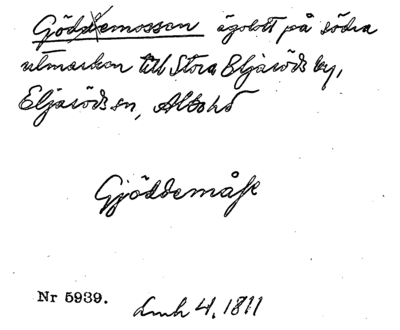 Göddemossen ägolott på södra
utmarken till Stora Eljaröds by,
Eljaröds sn, Albohd
Gjöddemåse
Nr 5939. Lmh 4. 1811